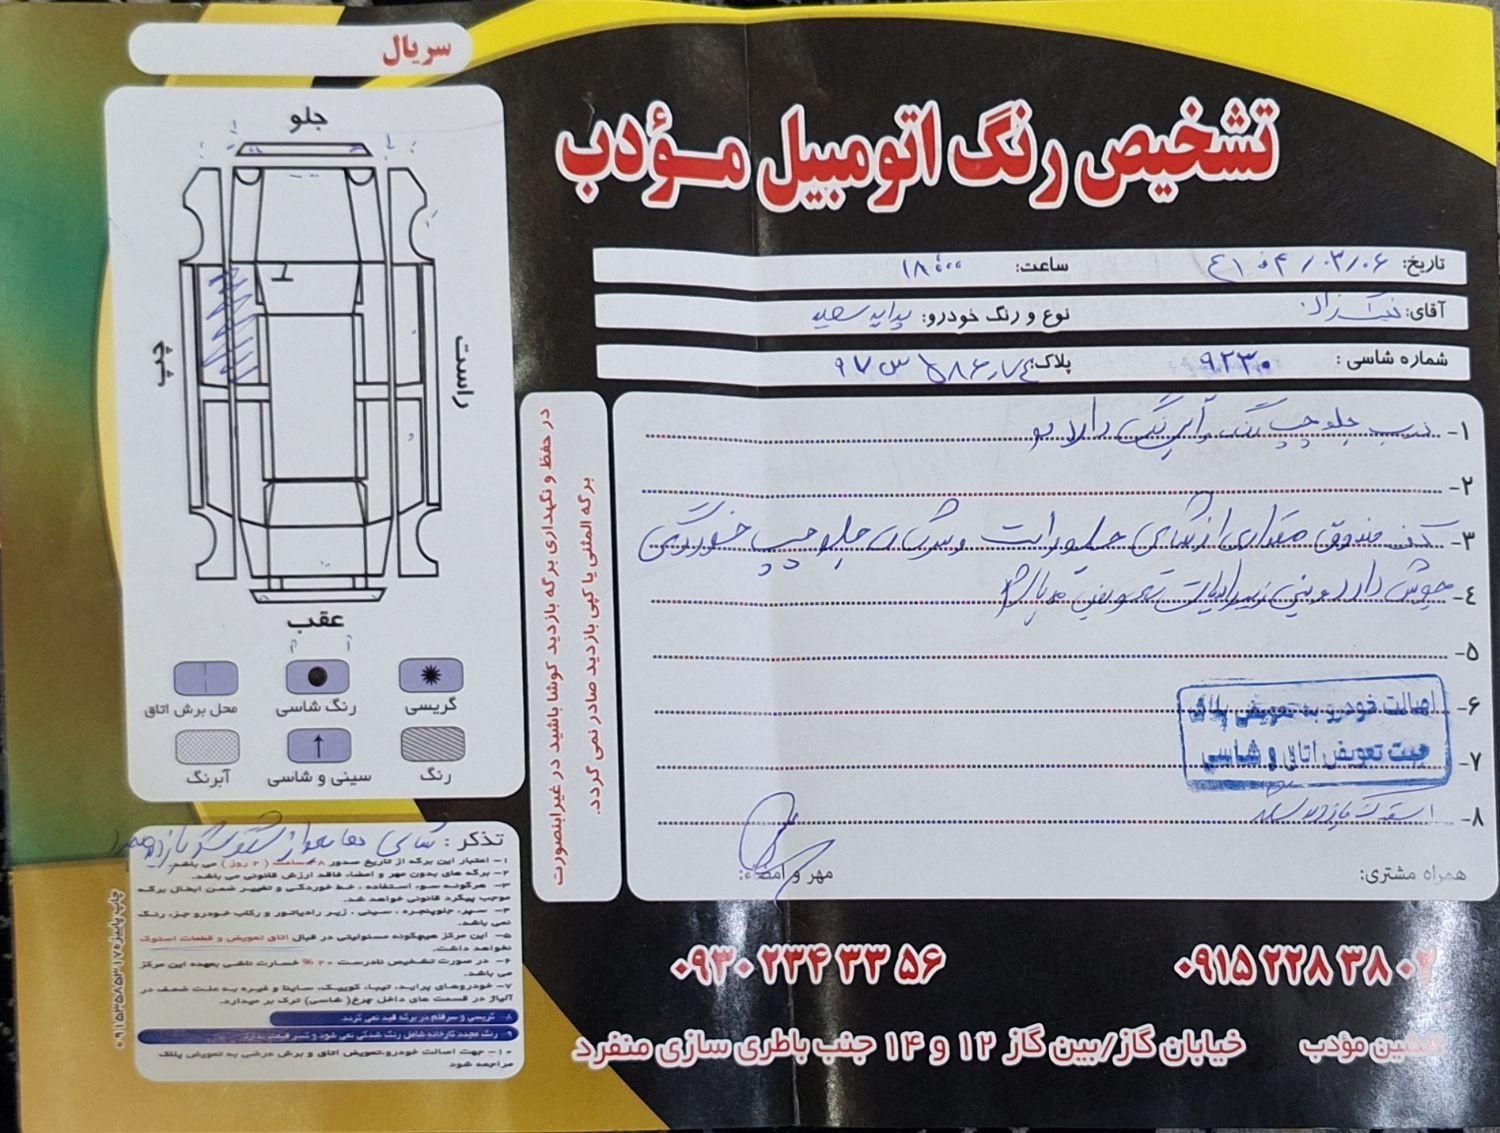 سریال
جلو
چپ
راست
عقب
گریسی
رنگ شاسی
محل برش اتاق
رنگ
سینی و شاسی
آبرنگ
تشخیص رنگ اتومبیل مؤدب
تاریخ: ۰۴/۰۳/۰۶ ساعت: ۱۸:۰۰
آقای: نوع و رنگ خودرو: پراید سفید
شماره شاسی: ۹۲۳۰ پلاک:
۱- درب جلو چپ رنگ و آبرنگ دارد
۲-
۳- کف صندوق مقداری از شاسی جلو راست و شاسی جلو چپ خوردگی
۴- جوش دارد سینی زیر رادیات تعویض
۵-
۶-
۷-
۸-
اصالت خودرو به تعویض پلاک
جهت تعویض اتاق و شاسی
همراه مشتری:
مهر و امضاء:
در حفظ و نگهداری برگه بازدید کوشا باشید در غیر اینصورت
برگه المثنی یا کپی بازدید صادر نمی گردد.
تذکر:
۱- اعتبار این برگه از تاریخ صدور ۴۸ ساعت (۲ روز) می باشد.
۲- برگه های بدون مهر و امضاء فاقد ارزش قانونی می باشد.
۳- هرگونه سوء استفاده، خط خوردگی و تغییر ضمن ابطال برگه
موجب پیگرد قانونی خواهد شد.
۴- سپر، جلوپنجره، سینی، زیر رادیاتور و رکاب خودرو جزء رنگ
نمی باشد.
۵- این مرکز هیچگونه مسئولیتی در قبال اتاق تعویض و قطعات استوک
نخواهد داشت.
۶- در صورت تشخیص نادرست ۲۰% خسارت ناشی بعهده این مرکز
می باشد.
۷- خودروهای پراید، تیبا، کوییک، ساینا و غیره به علت ضعف در
آلیاژ در قسمت های داخل چرخ (شاسی) ترک بر میدارد.
۸- گریسی و سرقلم در برگه قید نمی گردد.
۹- رنگ مجدد کارخانه شامل رنگ شدگی نمی شود و کسر قیمت ندارد.
۱۰- جهت اصالت خودرو، تعویض اتاق و برش مرضی به تعویض پلاک
مراجعه شود
۰۹۱۵ ۲۲۸ ۳۸ ۰۲
۰۹۳۰ ۲۳۴ ۳۳ ۵۶
مؤدب خیابان گاز/بین گاز ۱۲ و ۱۴ جنب باطری سازی منفرد
چاپ پاییزه ۰۹۱۵۳۵۸۵۳۱۷